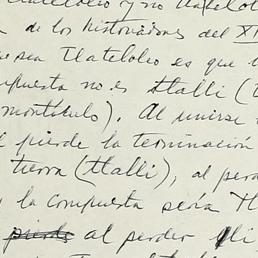 Tlatelolco y no Tlatelol
de los historiadores del XI
sea Tlatelolco es que l
mpuesta no es tlalli (t
montículo). Al unirse
pierde la terminación
tierra (tlalli), al perd
la compuesta sería Tl
pierde al perder lli,